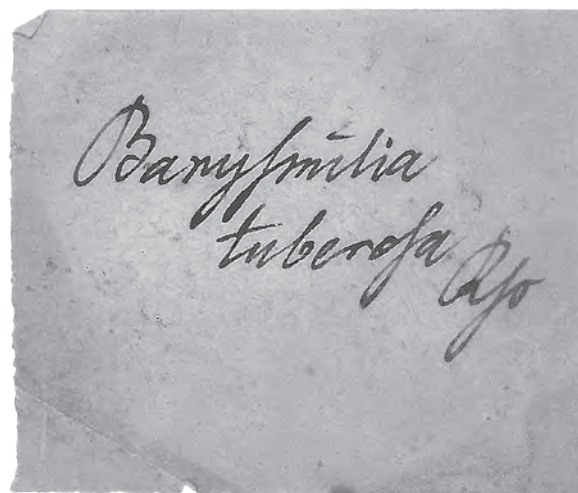 Baryſmilia
tuberoſa
Rſs